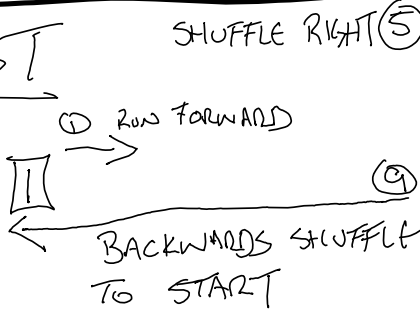 SHUFFLE RIGHT 5
1 RUN FORWARD
1
9
BACKWARDS SHUFFLE
TO START